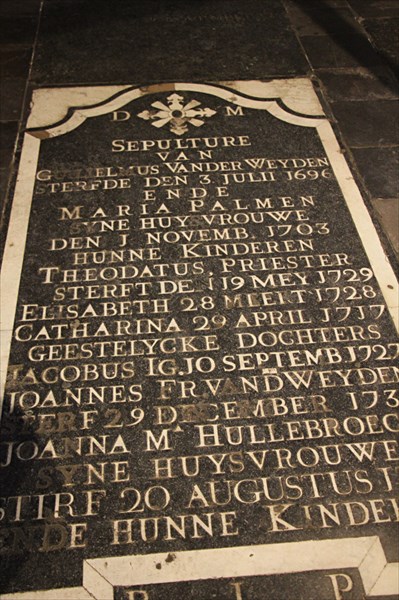 D M
SEPULTURE
VAN
GUILIELMUS VANDER WEYDEN
STERFDE DEN 3 JULII 1696
ENDE
MARIA PALMEN
SYNE HUYSVROUWE
DEN 1 NOVEMB. 1703
HUNNE KINDEREN
THEODATUS, PRIESTER
STERFT DE 19 MEY 1729
ELISABETH 28 MEERT 1728
CATHARINA 29 APRIL 1717
GEESTELYCKE DOCHTERS
JACOBUS IG. 10 SEPTEMB 1727
JOANNES FR. VAND WEYDEN
STERF 29 DECEMBER
JOANNA M. HULLEBROEC
SYNE HUYSVROUWE
STIRF 20 AUGUSTUS
ENDE HUNNE KINDER
R I P